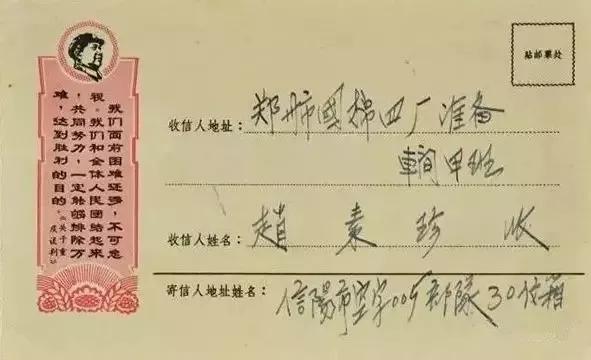 我们面前困难还多，不可忽
视。我们和全体人民团结起来
，共同努力，一定能够排除万
难，达到胜利的目的。
《关于重
庆谈判》
贴邮票处
收信人地址：郑州市國棉四厂准备
車间甲班
收信人姓名：趙 素 珍 收
寄信人地址姓名：信陽市空字部隊30信箱